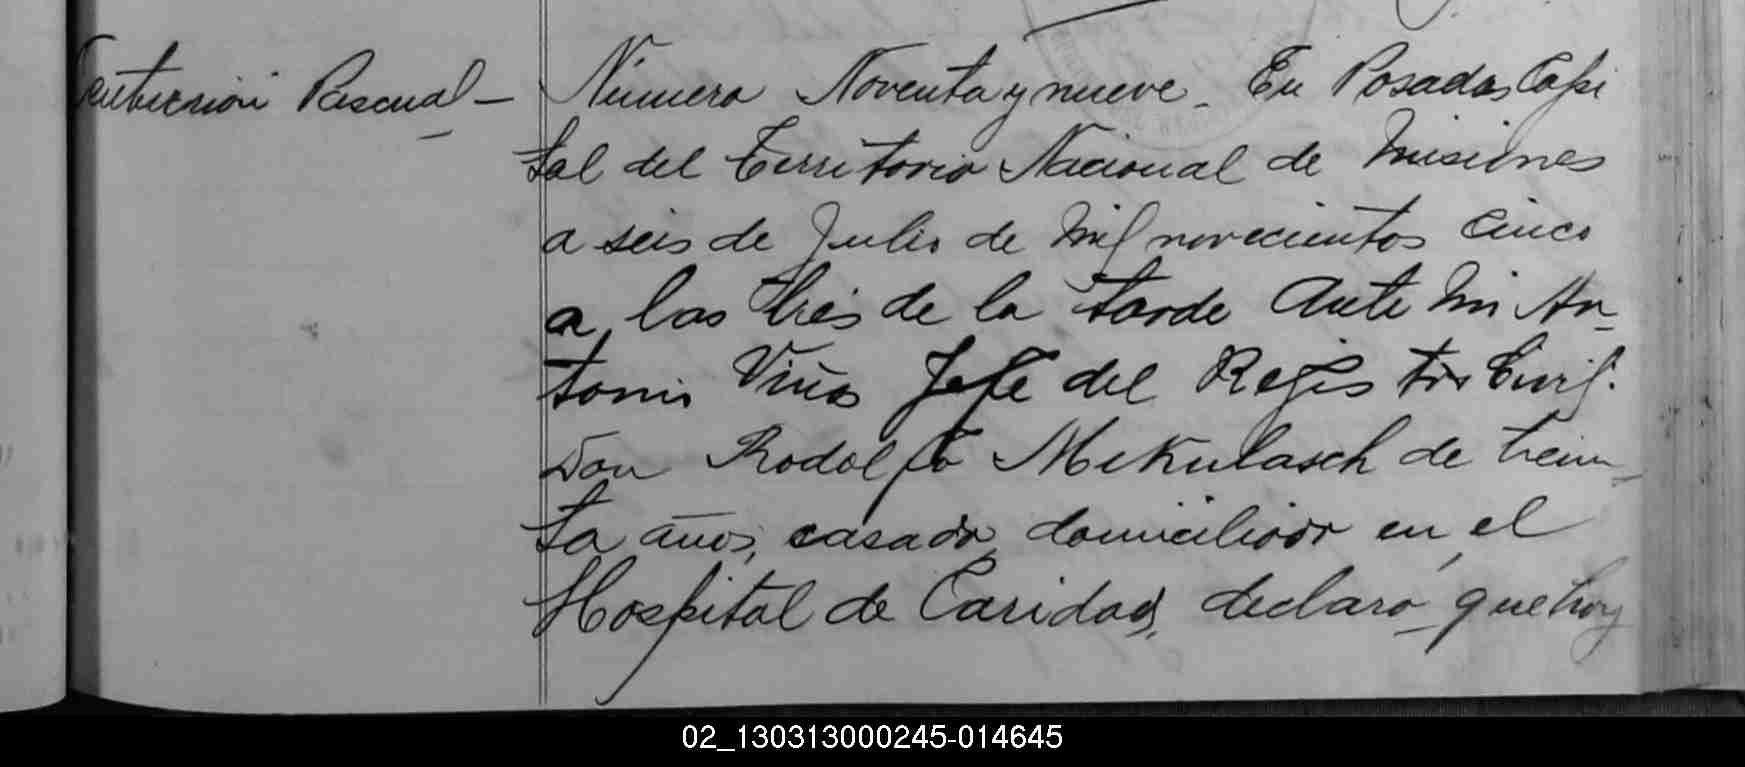 Pascual —
Número Noventa y nueve - En Posadas Capi
tal del Territorio Nacional de Misiones
a seis de Julio de Mil novecientos cinco
a las trés de la tarde Ante Mi An-
tonio Viñas Jefe del Registro Civil.
Don Rodolfo Mekulasch de trein-
ta años, casado, domiciliado en el
Hospital de Caridad, declaro que hoy
02_130313000245-014645